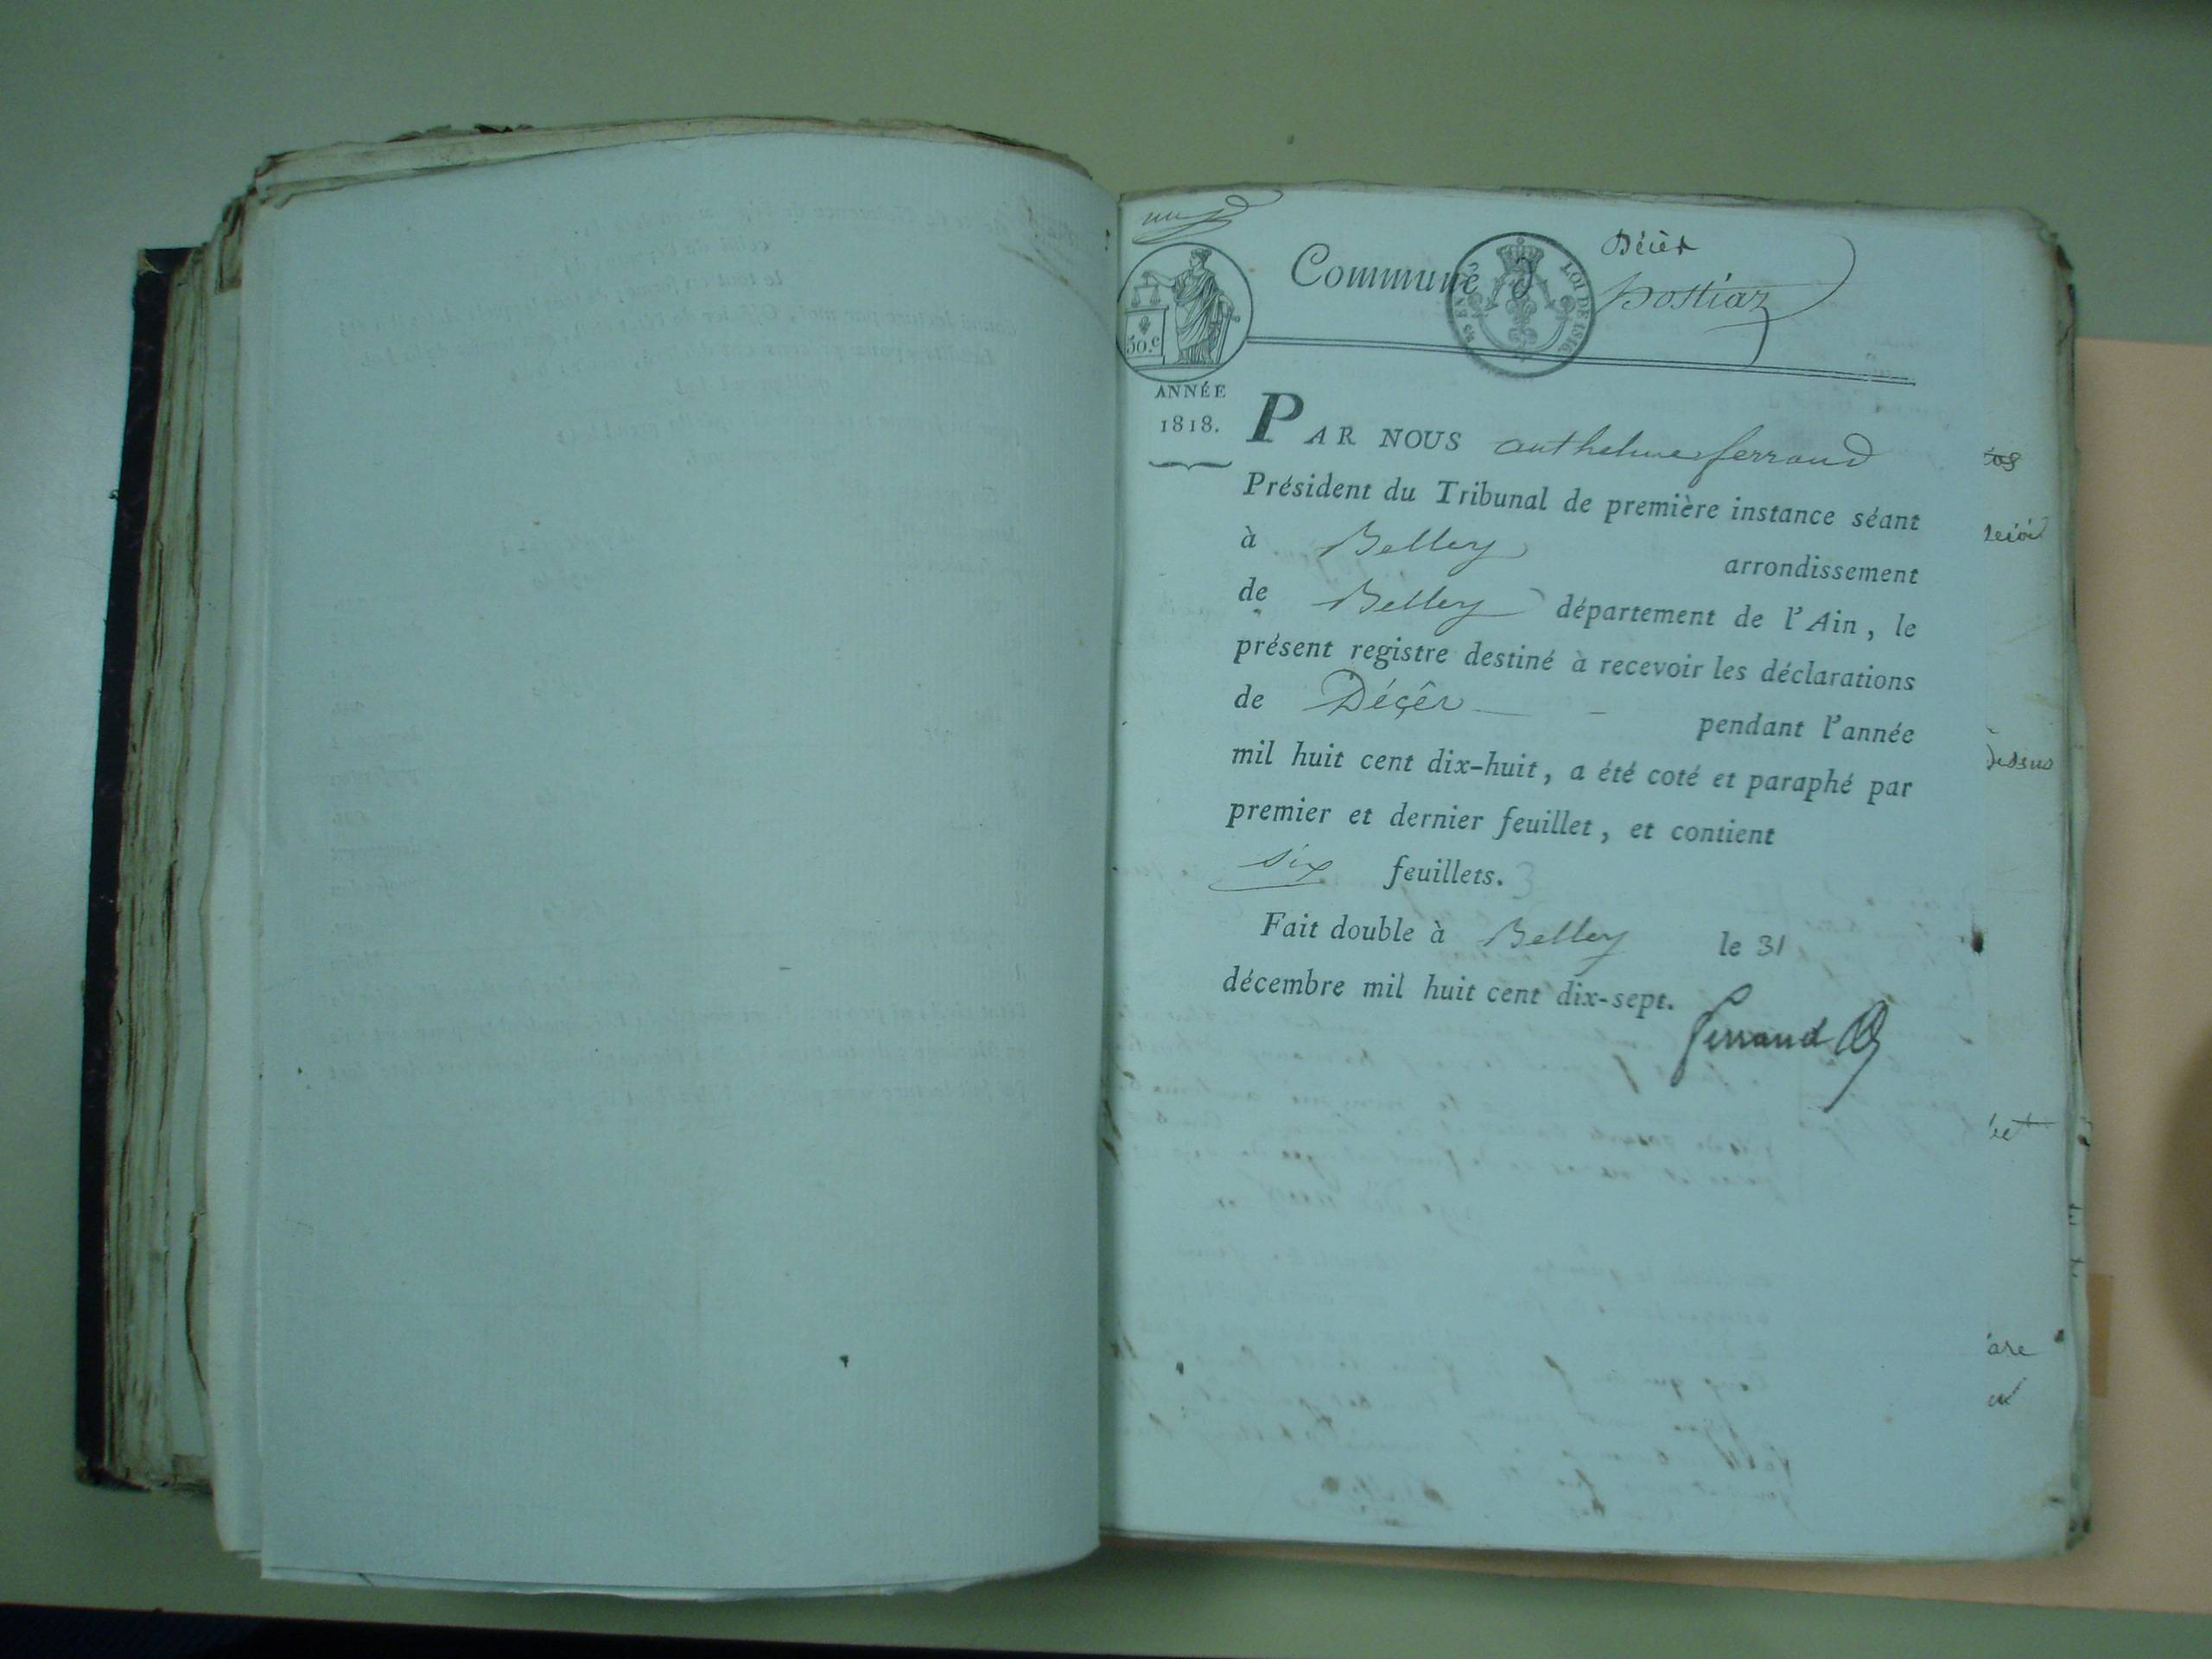 Décès
Commune d'hostiaz
LOI DE 1816.
50.c
ANNÉE
1818.
PAR NOUS anthelme ferrand
Président du Tribunal de première instance séant
à Belley arrondissement
de Belley département de l'Ain, le
présent registre destiné à recevoir les déclarations
de Déçês pendant l'année
mil huit cent dix-huit, a été coté et paraphé par
premier et dernier feuillet, et contient
six feuillets.
Fait double à Belley le 31
décembre mil huit cent dix-sept.
ferrand
dessus